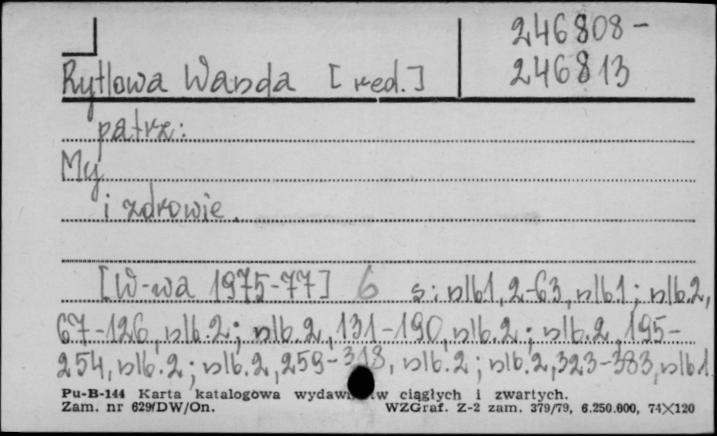 246808-
Rytlowa Wanda [red.] 246813
patrz:
My
i zdrowie.
[W-wa 1975-77] 6 s: nlb1, 2-63, nlb1; nlb.2,
67-126, nlb.2; nlb.2, 131-190, nlb.2; nlb.2, 195-
254, nlb.2; nlb.2, 259-318, nlb.2; nlb.2, 323-383, nlb1.
Pu-B-144 Karta katalogowa wydaw w ciągłych i zwartych.
Zam. nr 629/DW/On. WZGraf. Z-2 zam. 379/79, 6.250.000, 74×120